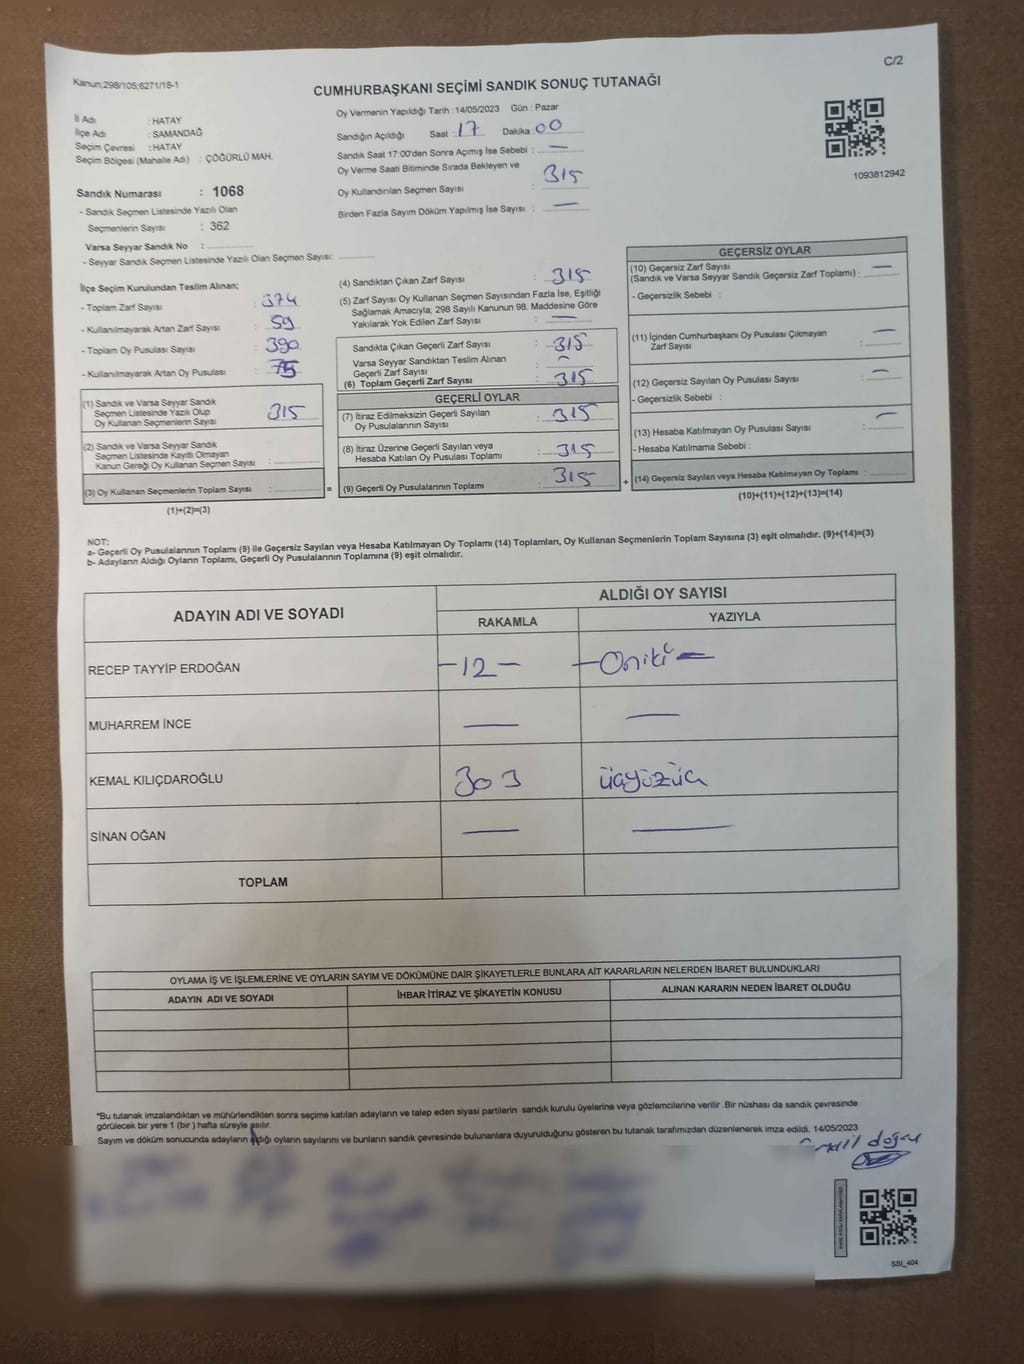 Kanun;298/105;6271/18-1
C/2
CUMHURBAŞKANI SEÇİMİ SANDIK SONUÇ TUTANAĞI
İl Adı : HATAY
İlçe Adı : SAMANDAĞ
Seçim Çevresi : HATAY
Seçim Bölgesi (Mahalle Adı) : ÇÖĞÜRLÜ MAH.
Sandık Numarası : 1068
- Sandık Seçmen Listesinde Yazılı Olan
Seçmenlerin Sayısı : 362
Varsa Seyyar Sandık No :
- Seyyar Sandık Seçmen Listesinde Yazılı Olan Seçmen Sayısı:
Oy Vermenin Yapıldığı Tarih : 14/05/2023 Gün : Pazar
Sandığın Açıldığı Saat : 17 Dakika : 00
Sandık Saat 17:00'den Sonra Açımış İse Sebebi : —
Oy Verme Saati Bitiminde Sırada Bekleyen ve
Oy Kullandırılan Seçmen Sayısı : 315
Birden Fazla Sayım Döküm Yapılmış İse Sayısı : —
1093812942
İlçe Seçim Kurulundan Teslim Alınan;
- Toplam Zarf Sayısı : 374
- Kullanılmayarak Artan Zarf Sayısı : 59
- Toplam Oy Pusulası Sayısı : 390
- Kullanılmayarak Artan Oy Pusulası : 75
(1) Sandık ve Varsa Seyyar Sandık
Seçmen Listesinde Yazılı Olup
Oy Kullanan Seçmenlerin Sayısı : 315
(2) Sandık ve Varsa Seyyar Sandık
Seçmen Listesinde Kayıtlı Olmayan
Kanun Gereği Oy Kullanan Seçmen Sayısı :
(3) Oy Kullanan Seçmenlerin Toplam Sayısı :
(1)+(2)=(3)
=
(4) Sandıktan Çıkan Zarf Sayısı : 315
(5) Zarf Sayısı Oy Kullanan Seçmen Sayısından Fazla İse, Eşitliği
Sağlamak Amacıyla; 298 Sayılı Kanunun 98. Maddesine Göre
Yakılarak Yok Edilen Zarf Sayısı : —
Sandıkta Çıkan Geçerli Zarf Sayısı : 315
Varsa Seyyar Sandıktan Teslim Alınan
Geçerli Zarf Sayısı : —
(6) Toplam Geçerli Zarf Sayısı : 315
GEÇERLİ OYLAR
(7) İtiraz Edilmeksizin Geçerli Sayılan
Oy Pusulalarının Sayısı : 315
(8) İtiraz Üzerine Geçerli Sayılan veya
Hesaba Katılan Oy Pusulası Toplamı : 315
(9) Geçerli Oy Pusulalarının Toplamı : 315
+
GEÇERSİZ OYLAR
(10) Geçersiz Zarf Sayısı
(Sandık ve Varsa Seyyar Sandık Geçersiz Zarf Toplamı) : —
- Geçersizlik Sebebi :
(11) İçinden Cumhurbaşkanı Oy Pusulası Çıkmayan
Zarf Sayısı : —
(12) Geçersiz Sayılan Oy Pusulası Sayısı : —
- Geçersizlik Sebebi :
(13) Hesaba Katılmayan Oy Pusulası Sayısı : —
- Hesaba Katılmama Sebebi :
(14) Geçersiz Sayılan veya Hesaba Katılmayan Oy Toplamı :
(10)+(11)+(12)+(13)=(14)
NOT:
a- Geçerli Oy Pusulalarının Toplamı (9) ile Geçersiz Sayılan veya Hesaba Katılmayan Oy Toplamı (14) Toplamları, Oy Kullanan Seçmenlerin Toplam Sayısına (3) eşit olmalıdır. (9)+(14)=(3)
b- Adayların Aldığı Oyların Toplamı, Geçerli Oy Pusulalarının Toplamına (9) eşit olmalıdır.
ADAYIN ADI VE SOYADI
ALDIĞI OY SAYISI
RAKAMLA YAZIYLA
RECEP TAYYİP ERDOĞAN —12— —Oniki—
MUHARREM İNCE — —
KEMAL KILIÇDAROĞLU 303 üçyüzüç
SİNAN OĞAN — —
TOPLAM
OYLAMA İŞ VE İŞLEMLERİNE VE OYLARIN SAYIM VE DÖKÜMÜNE DAİR ŞİKAYETLERLE BUNLARA AİT KARARLARIN NELERDEN İBARET BULUNDUKLARI
ADAYIN ADI VE SOYADI İHBAR İTİRAZ VE ŞİKAYETİN KONUSU ALINAN KARARIN NEDEN İBARET OLDUĞU
*Bu tutanak imzalandıktan ve mühürlendikten sonra seçime katılan adayların ve talep eden siyasi partilerin sandık kurulu üyelerine veya gözlemcilerine verilir. Bir nüshası da sandık çevresinde
görülecek bir yere 1 (bir) hafta süreyle asılır.
Sayım ve döküm sonucunda adayların aldığı oyların sayılarını ve bunların sandık çevresinde bulunanlara duyurulduğunu gösteren bu tutanak tarafımızdan düzenlenerek imza edildi. 14/05/2023
SSI_404